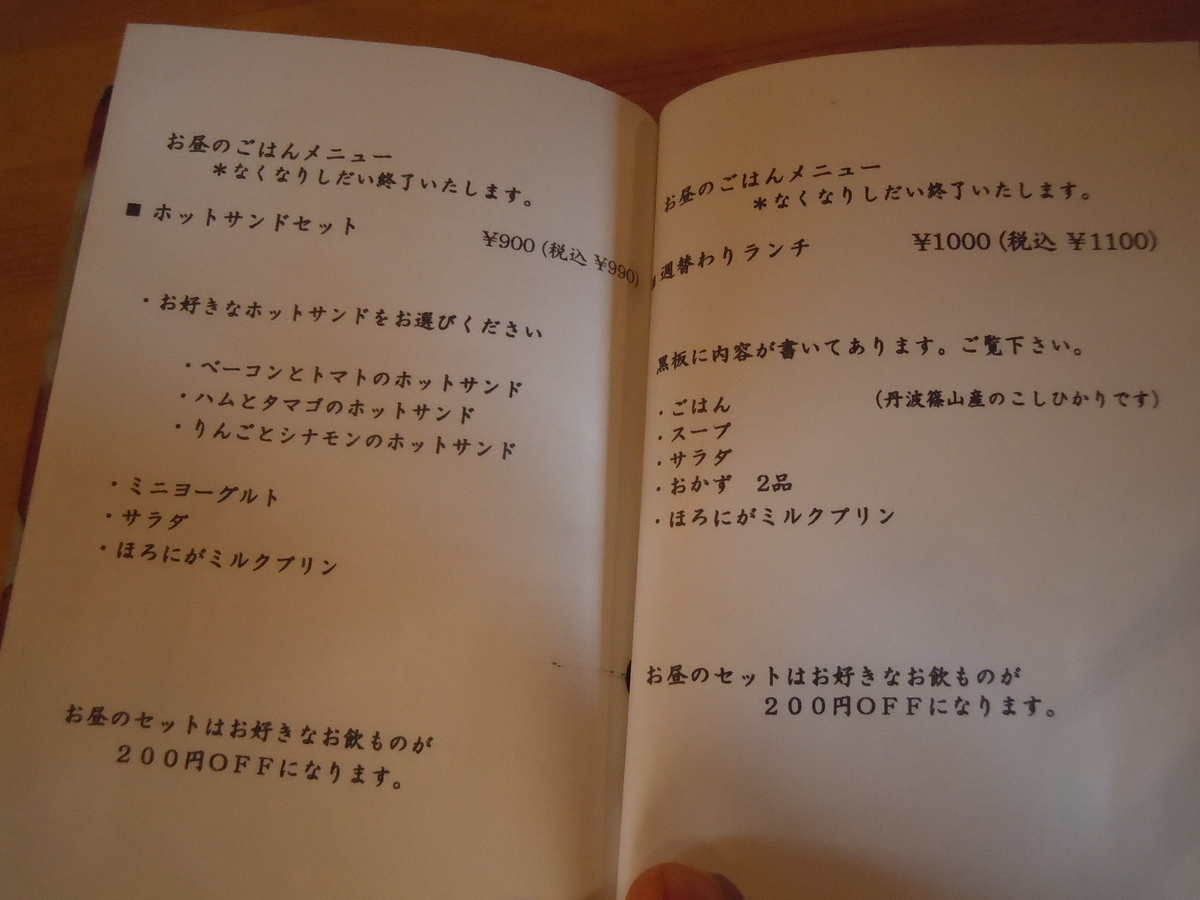 お昼のごはんメニュー
＊なくなりしだい終了いたします。
■ ホットサンドセット
¥900 (税込 ¥990)
・お好きなホットサンドをお選びください
・ベーコンとトマトのホットサンド
・ハムとタマゴのホットサンド
・りんごとシナモンのホットサンド
・ミニヨーグルト
・サラダ
・ほろにがミルクプリン
お昼のセットはお好きなお飲ものが
２００円ＯＦＦになります。
お昼のごはんメニュー
＊なくなりしだい終了いたします。
■ 週替わりランチ ¥1000 (税込 ¥1100)
黒板に内容が書いてあります。ご覧下さい。
・ごはん （丹波篠山産のこしひかりです）
・スープ
・サラダ
・おかず 2品
・ほろにがミルクプリン
お昼のセットはお好きなお飲ものが
２００円ＯＦＦになります。